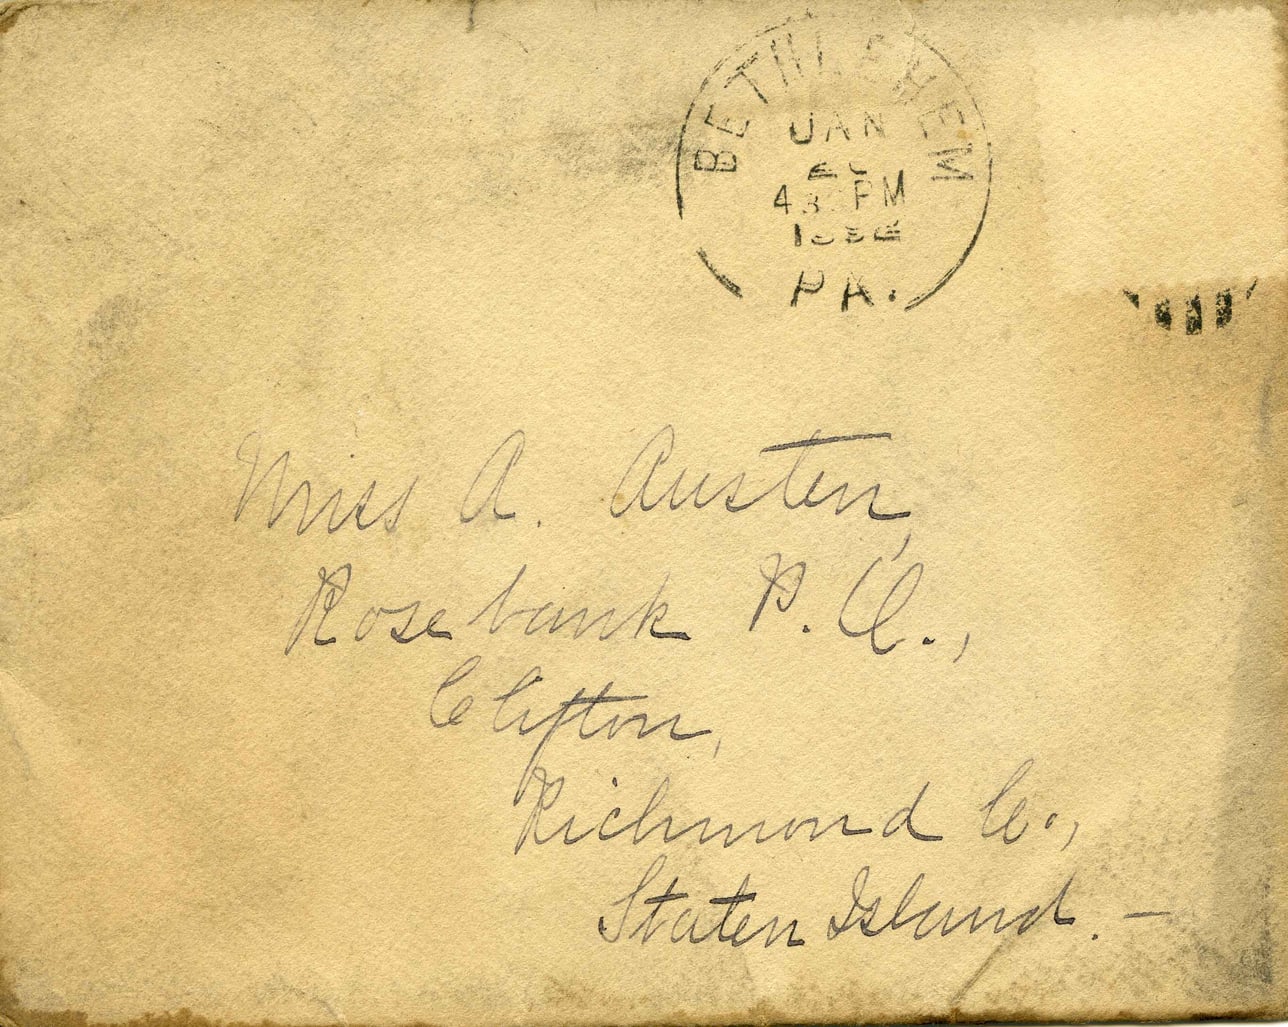 BETHLEHEM
JAN
PM
PA.
Miss A. Austen,
Rosebank P. O.,
Clifton,
Richmond Co.,
Staten Island. —